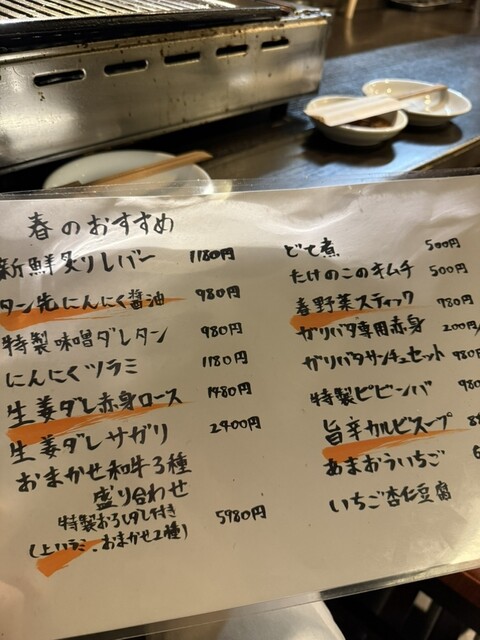 春のおすすめ
新鮮炙りレバー 1180円
タン先にんにく醤油 980円
特製味噌ダレタン 980円
にんにくツラミ 1180円
生姜ダレ赤身ロース 1480円
生姜ダレサガリ 2400円
おまかせ和牛3種
盛り合わせ
特製おろしダレ付き 5980円
(上ハラミ、おまかせ2種)
どて煮 500円
たけのこのキムチ 500円
春野菜スティック 980円
ガリバタ専用赤身 200円/
ガリバタサンチュセット 980円
特製ビビンバ 980
旨辛カルビスープ
あまおういちご
いちご杏仁豆腐